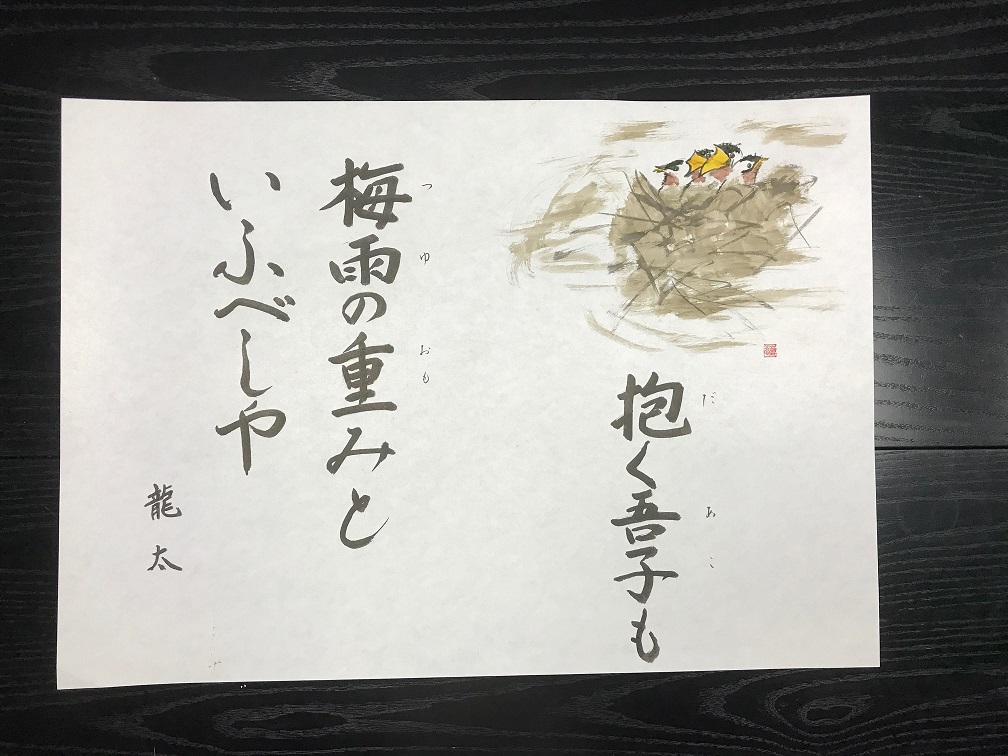 抱く吾子も
だ あこ
梅雨の重みと
つゆ おも
いふべしや
龍太